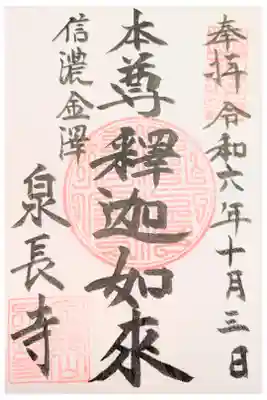 奉拝 令和六年十月三日
本尊釋迦如來
信濃金澤
泉長寺